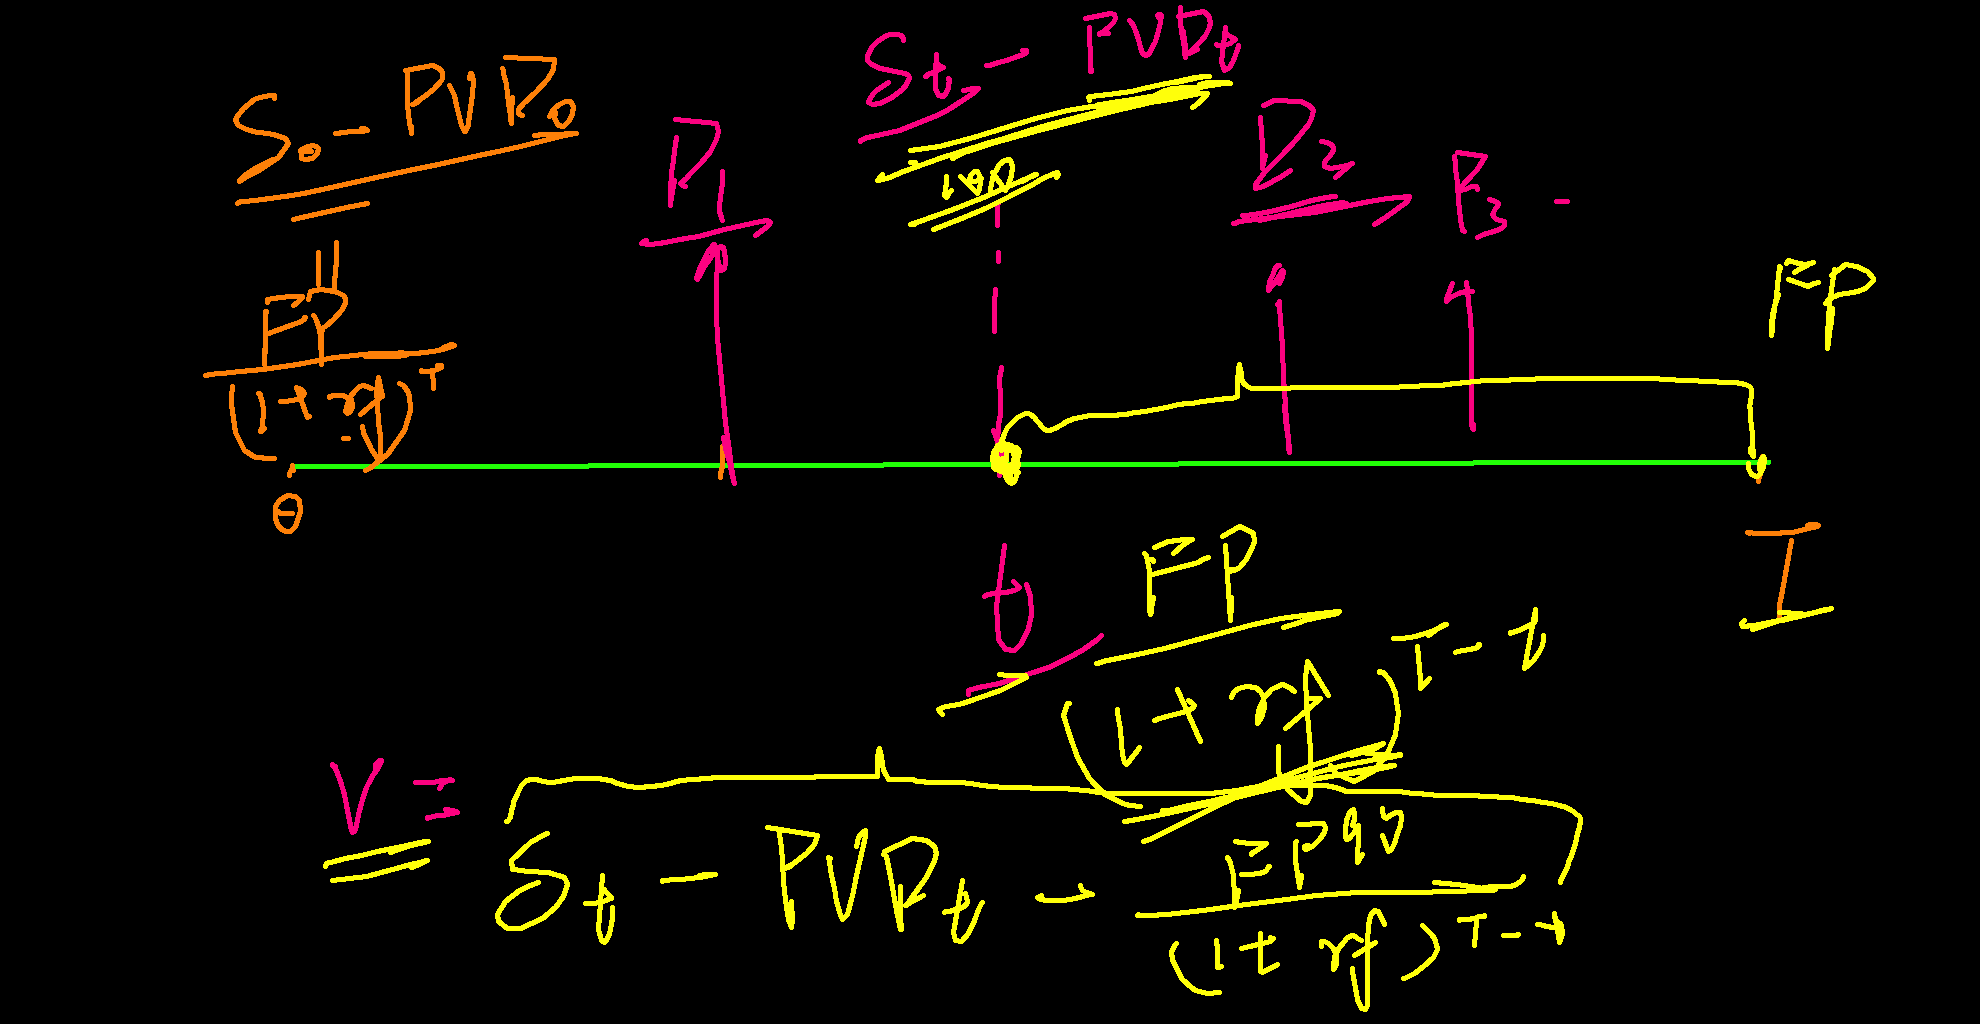 S₀ - PVD₀
FP
(1 + rf)^T
D₁
S_t - PVD_t
100
D₂
D₃ -
FP
0
t
T
FP
(1 + rf)^T-t
V = S_t - PVD_t - FP
90
(1 + rf)^T-t